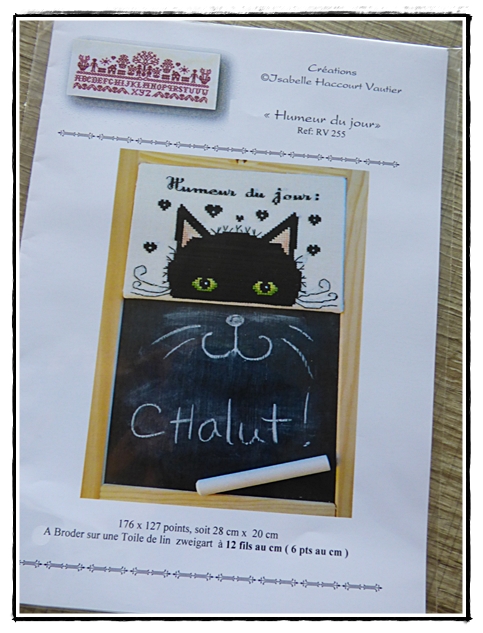 Créations
©Isabelle Haccourt Vautier
« Humeur du jour»
Ref: RV 255
ABCDEFGHIJKLMNOPQRSTUV
XYZ
Humeur du jour:
CHalut!
176 x 127 points, soit 28 cm x 20 cm
A Broder sur une Toile de lin zweigart à 12 fils au cm ( 6 pts au cm )